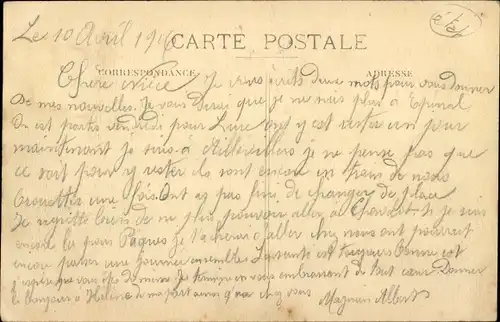 Le 10 Avril 191
CARTE POSTALE
CORRESPONDANCE
ADRESSE
Chère nièce Je vous écrits deux mots pour vous donner
de mes nouvelles. Je vous dirai que je ne suis plus à Epinal
On est partis vendredi pour Lure on y est rester un jour
maintenant je suis à je ne pense pas que
ce soit pour y rester ils sont encore en train de nous
une fois ont as pas fini de changer de place
Je regrette de ne plus pouvoir aller à si je suis
encore là pour Pâques je t'acherai d'aller nous ont pourrait
encore passer une journée ensemble La santé est toujours bonne et
j'espère que vous de même Je termine en vous embrassant de tout cœur Donner
le bonjours à Hélène de ma part ainsi chez vous Magnien Albert